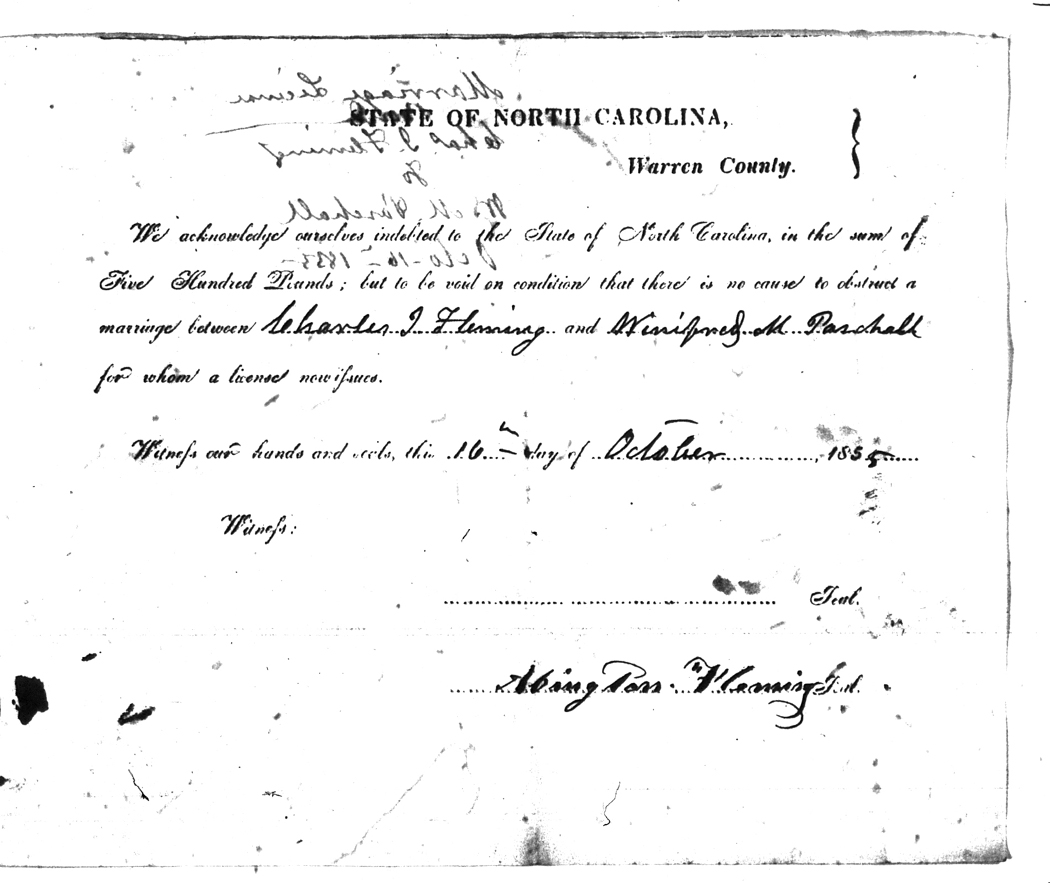 STATE OF NORTH CAROLINA,
Warren County.
We acknowledge ourselves indebted to the State of North Carolina, in the sum of
Five Hundred Pounds; but to be void on condition that there is no cause to obstruct a
marriage between Charles I Fleming and Winifred M Paschall
for whom a license now issues.
Witness our hands and seals, this 16th day of October, 1855
Witness:
Seal.
Abington Fleming Seal.
Marriage License
Chas I. Fleming
to
W M Paschall